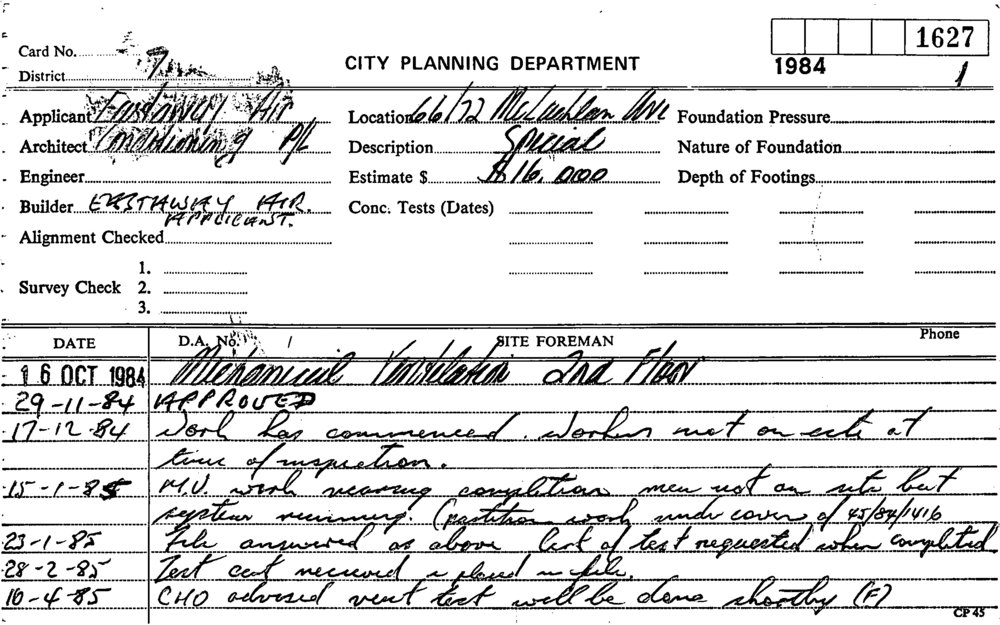 Card No.
District 7
CITY PLANNING DEPARTMENT
1627
1984 1
Applicant Eastaway Air
Architect Conditioning P/L
Engineer
Builder EASTAWAY AIR.
APPLICANT.
Alignment Checked
Survey Check 1.
2.
3.
Location 66/72 McLachlan Ave
Description Special
Estimate $ $16,000
Conc. Tests (Dates)
Foundation Pressure
Nature of Foundation
Depth of Footings
DATE D.A. No. SITE FOREMAN Phone
16 OCT 1984 Mechanical Ventilation 2nd Floor
29-11-84 APPROVED
17-12-84 Work has commenced. Workers not on site at
time of inspection.
15-1-85 M.V. work nearing completion men not on site but
system running. (partition work under cover of 45/84/1416
23-1-85 File answered as above Cert of test requested when completed
28-2-85 Test cert received & placed in file.
10-4-85 CHO advised vent test will be done shortly (F)
CP 45